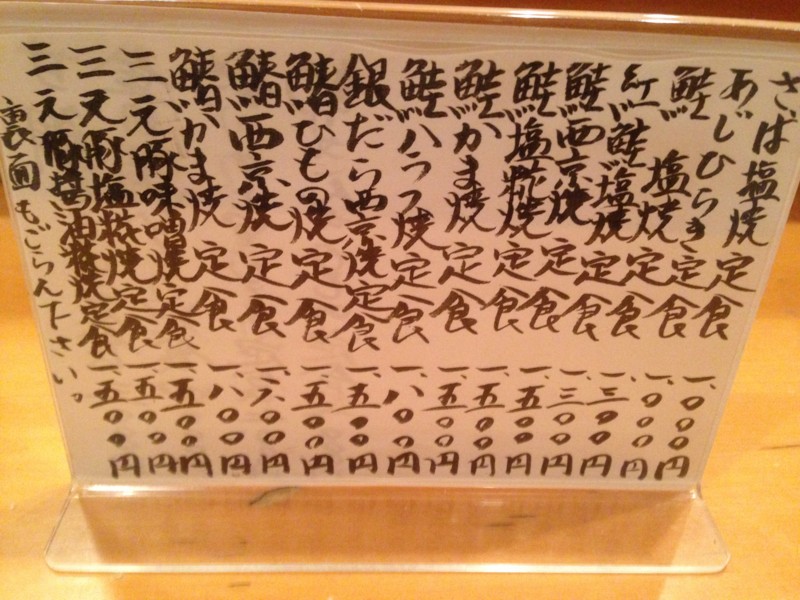 さば塩焼定食 一、〇〇〇円
あじひらき定食 一、〇〇〇円
鮭塩焼定食 一、三〇〇円
紅鮭塩焼定食 一、三〇〇円
鮭西京焼定食 一、五〇〇円
鮭塩糀焼定食 一、五〇〇円
鮭かま焼定食 一、五〇〇円
鮭ハラス焼定食 一、八〇〇円
銀だら西京焼定食 一、五〇〇円
鰆ひもの焼定食 一、五〇〇円
鰆西京焼定食 一、六〇〇円
鰆かま焼定食 一、八〇〇円
三元豚味噌焼定食 一、五〇〇円
三元豚塩糀焼定食 一、五〇〇円
三元豚醤油糀焼定食 一、五〇〇円
裏面もごらん下さい。